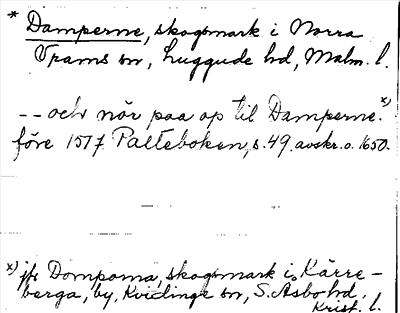 * Damperne, skogsmark i Norra
Vrams sn, Luggude hd, Malm. l.
-- och nör paa op til Damperne. x)
före 1577 Palteboken, s. 49. avskr. o. 1650.
x) jfr Dompoma, skogsmark i Kärre-
berga, by, Kvidinge sn, S. Åsbo hd.
Krist. l.